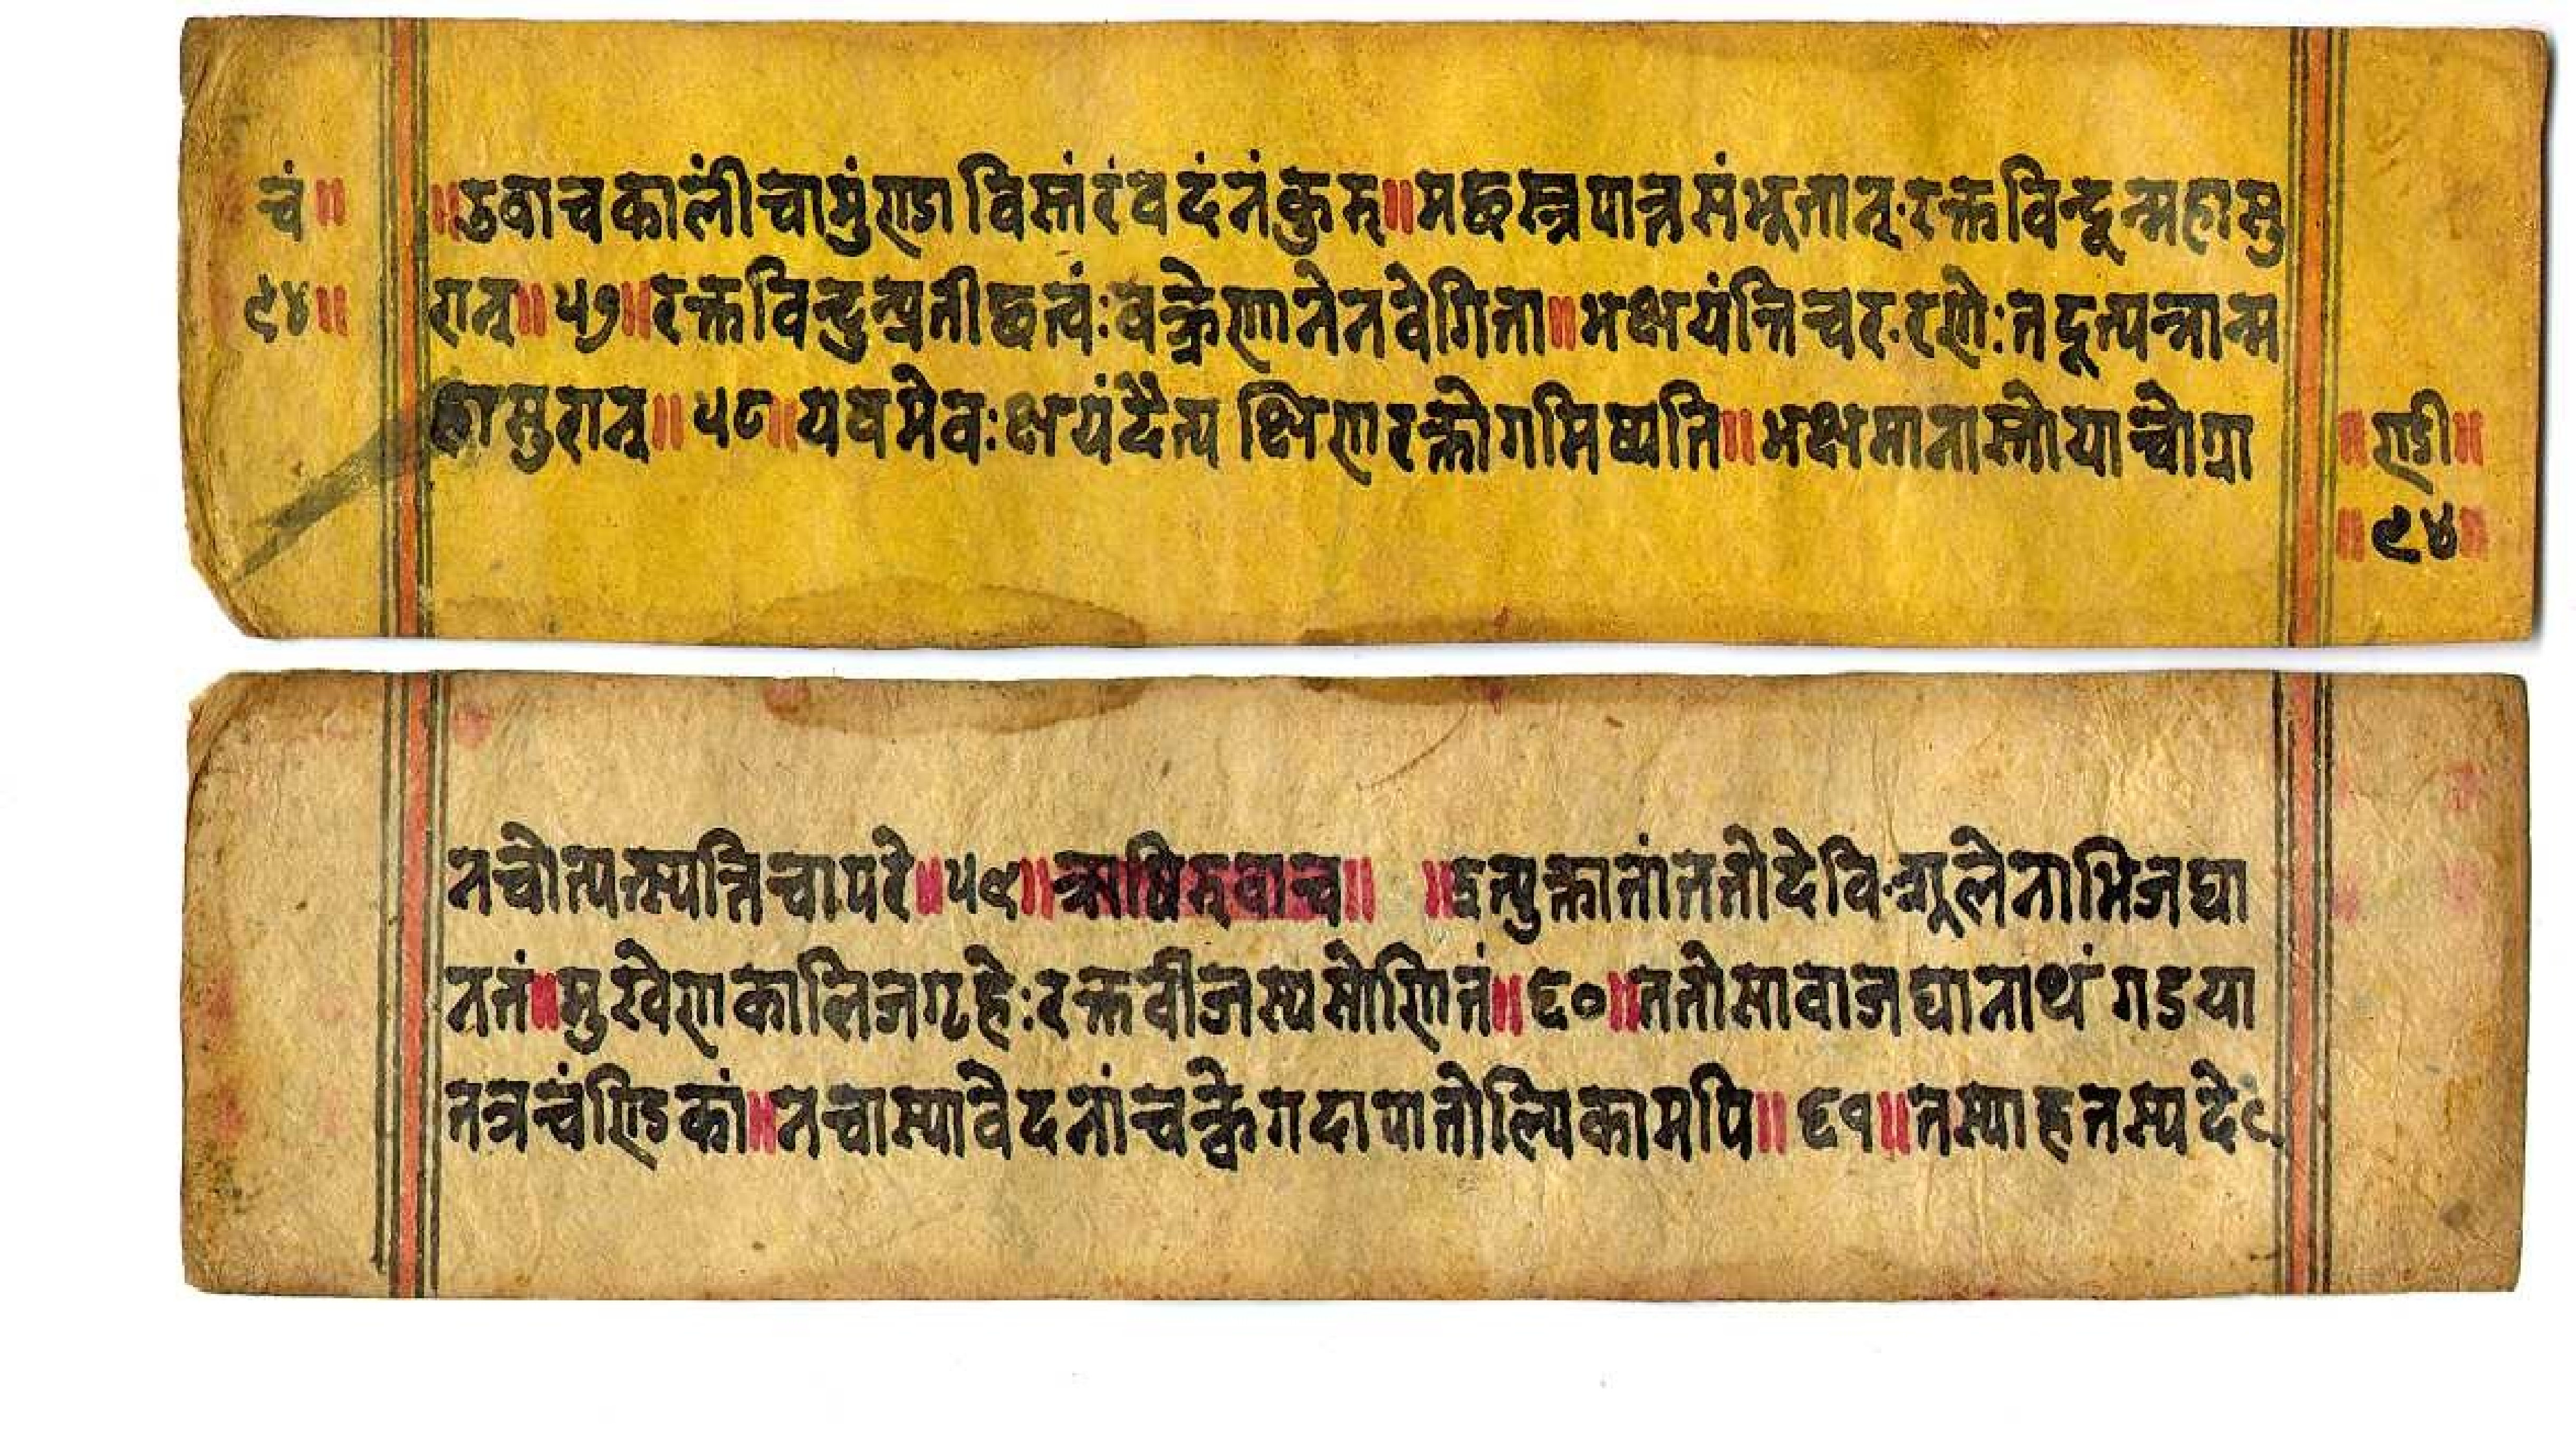 चं॥ ॥उवाचकालींचामुंण्डाविस्तंरंवदंनंकुरु॥मछस्त्रपात्रसंभूतान्·रक्तविन्दून्महासु
९४॥ रान्॥५७॥रक्तविन्दुन्प्रतीछत्वं:वक्त्रेणानेनवेगिता॥भक्षयंन्तिचर·रणे:तदूत्पन्नान्म
हासुरान्॥५८॥यवमेव:क्षयंदैत्यक्षिणरक्तोगमिष्यति॥भक्षमानास्तोयाच्चोग्रा ॥ण्डी॥
॥९४॥
नचोत्पत्स्यन्तिचापरे॥५९॥ऋषिरुवाच॥ ॥इत्युक्तातांततोदेवि·शूलेनाभिजघा
नतं॥मुखेणकालिजगृहे:रक्तवीजस्यसोणितं॥६०॥ततोसावाजघानाथंगडया
तत्रचंण्डिकां॥नचास्यावेदनांचक्रेगदापातोल्पिकामपि॥६१॥तस्याहतस्यदे